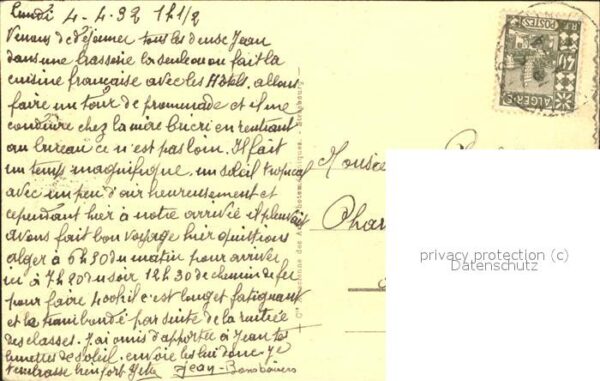 Lundi 4-4-32 1h1/2
Venons de déjeuner tous les deux Jean
dans une brasserie la seule ou on fait la
cuisine française avec les Hôtels. allons
faire un tour de promenade et il me
conduire chez la mère en rentrant
au bureau ce n'est pas loin. Il fait
un temps magnifique. un soleil tropical
avec un peu d'air heureusement et
cependant hier à notre arrivée il pleuvait
avons fait bon voyage hier quittions
alger à 6h30 du matin pour arriver
ici à 7h20 du soir 12h30 de chemin de fer
pour faire 400 kil c'est long et fatigant
et le train bondé par suite de la rentrée
des classes. J'ai omis d'apporter à Jean tes
lunettes de soleil. envoie les lui donc. Je
t'embrasse bien fort Jean Bons baisers
R.F. POSTES
40
ALGERIE
Strasbourg
Monsieur
Phar
privacy protection (c)
Datenschutz